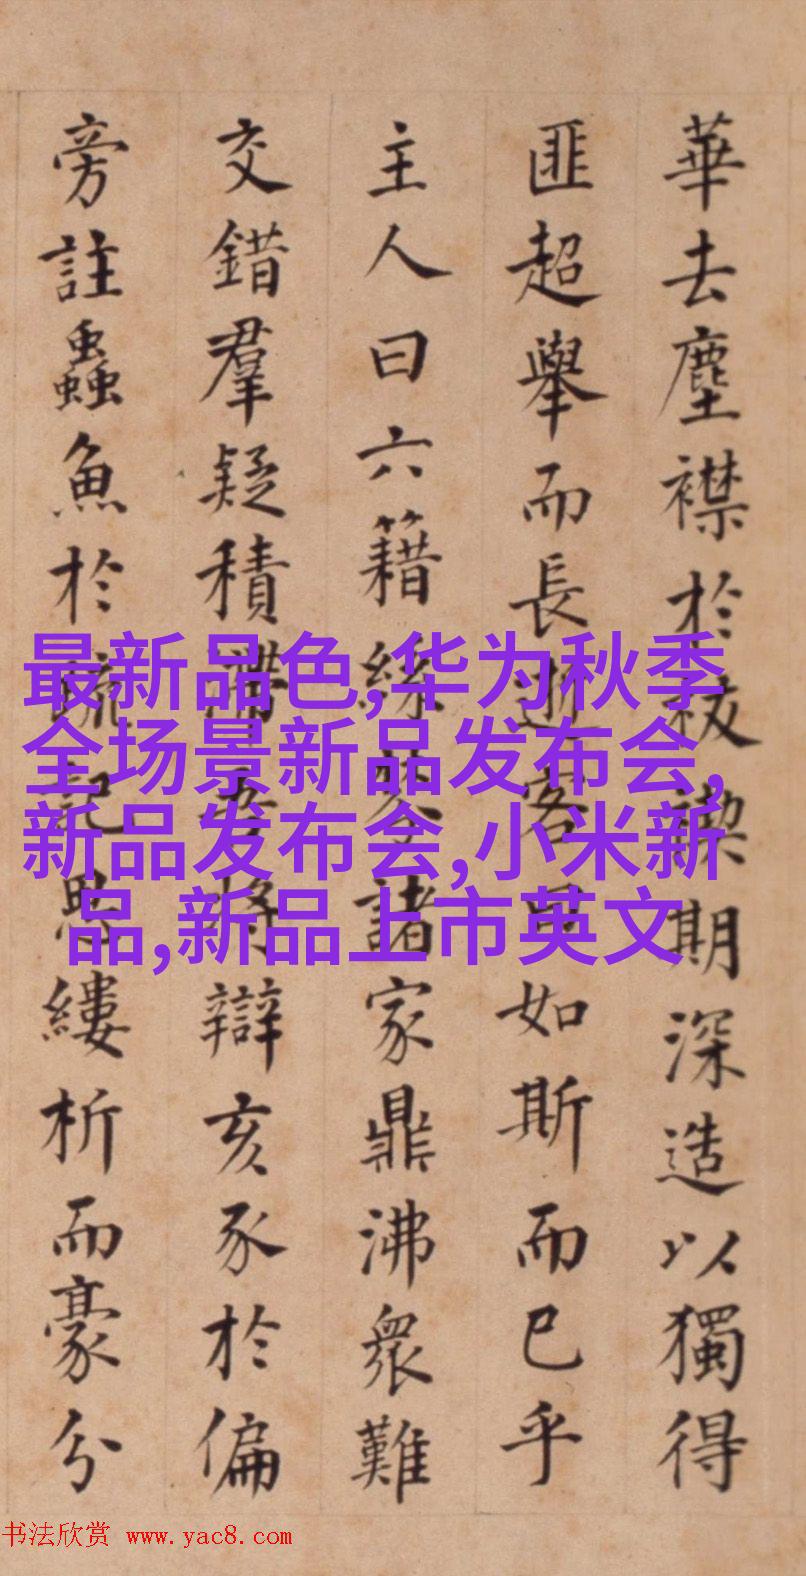 華去塵襟於袚禊期深造以獨得
匪超舉而長逝客曰如斯而已乎
主人曰六籍絲棼諸家鼎沸眾難
交錯羣疑積滯吾將辯亥豕於偏
旁註蟲魚於疏記思縷析而豪分
最新品色,华为秋季
全场景新品发布会,
新品发布会,小米新
品,新品上市英文
书法欣赏 www.yac8.com